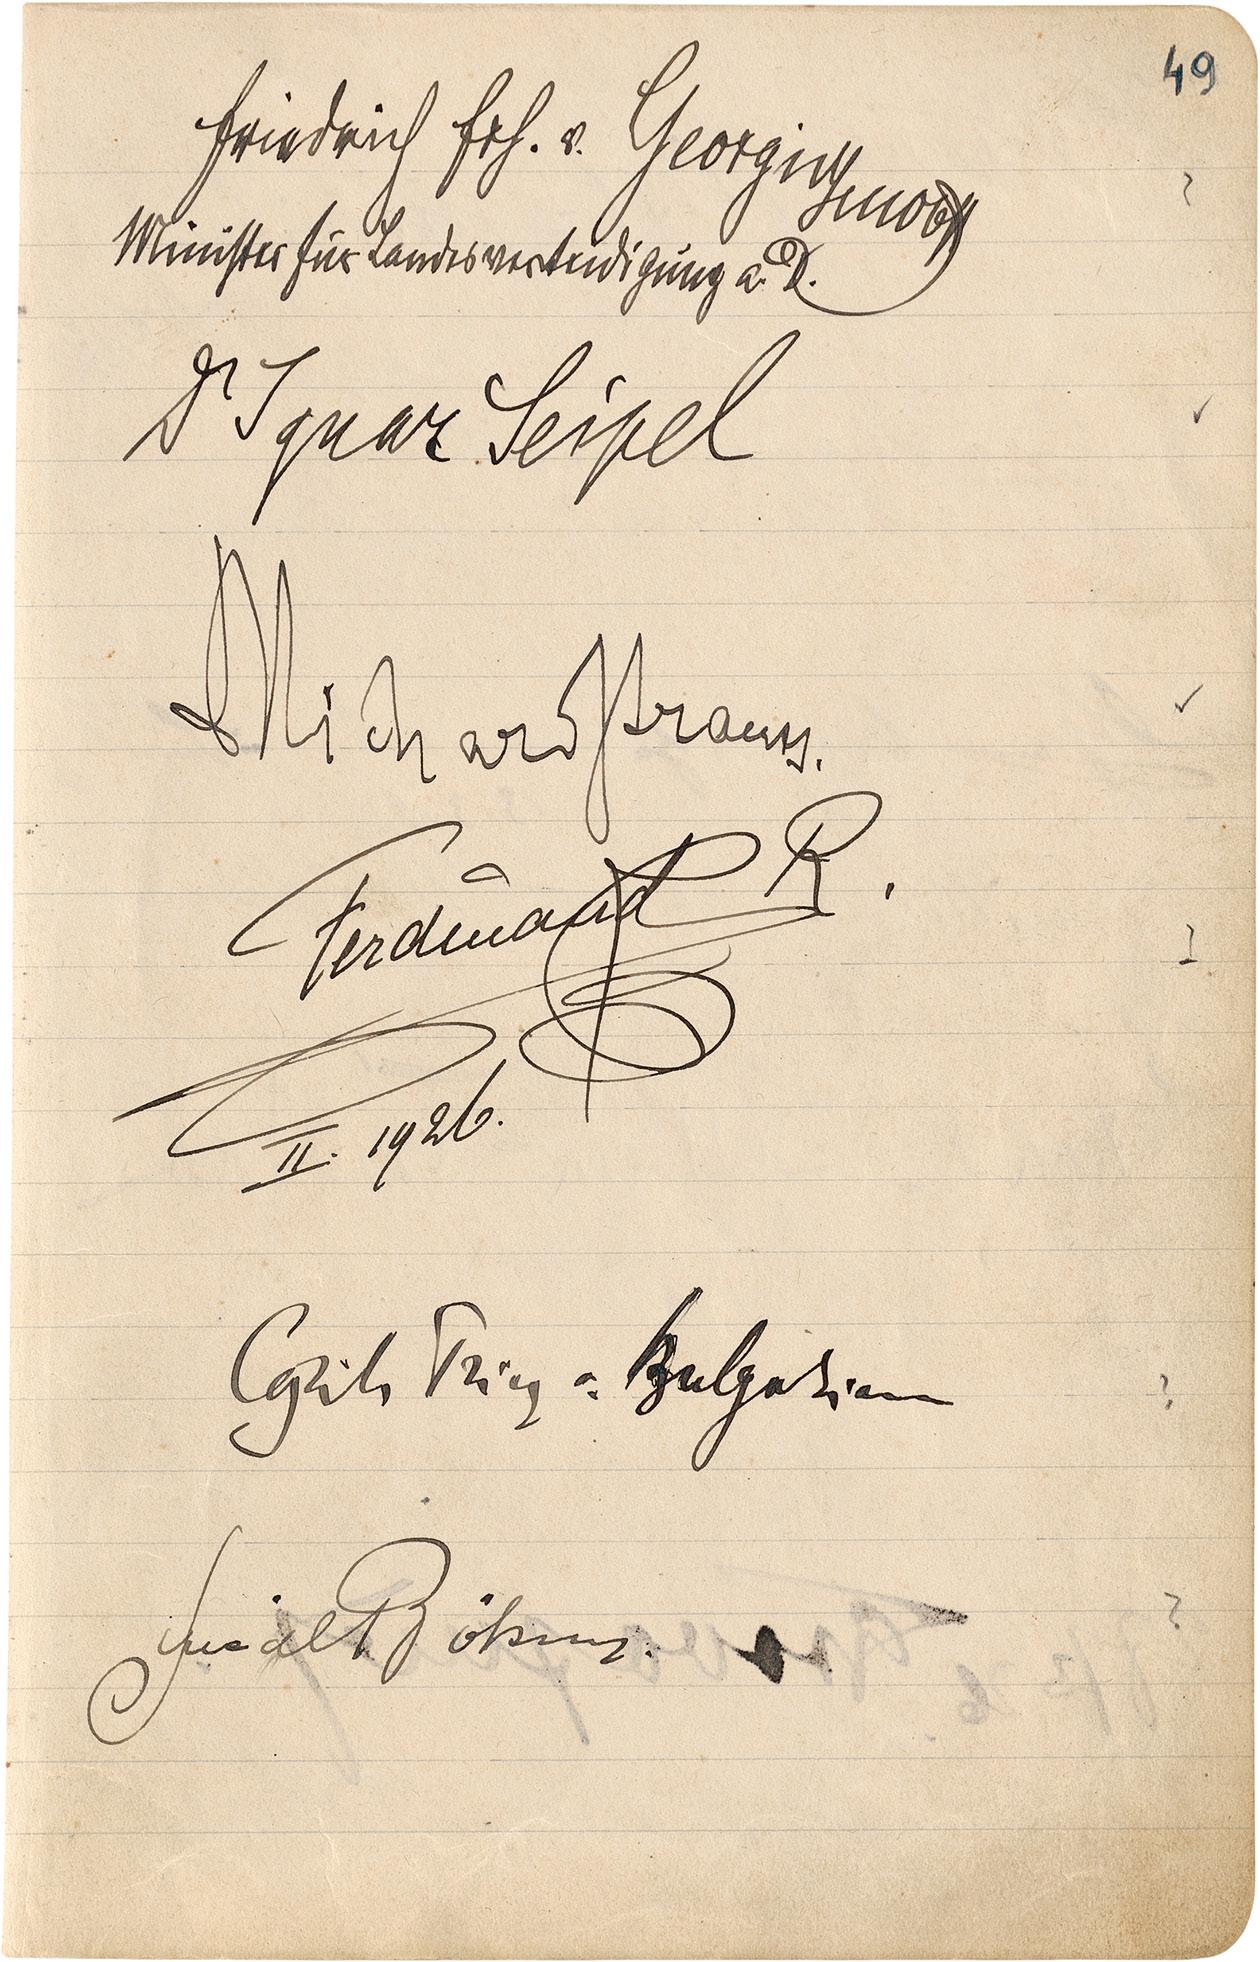 49
Friedrich Frh. v. Georgi GenObst
Minister für Landesverteidigung a. D.
Dr Ignaz Seipel
Richard Strauss.
Ferdinand R.
II. 1926.
Cyrill Prinz v. Bulgarien
Böhm.